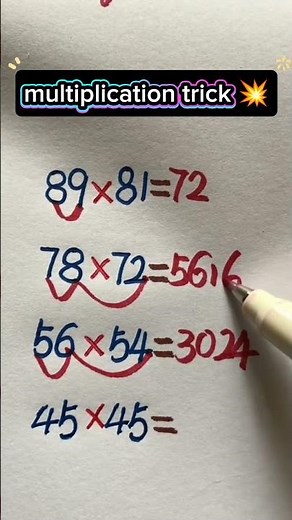 multiplication trick 💥
89×81=72
78×72=5616
56×54=3024
45×45=